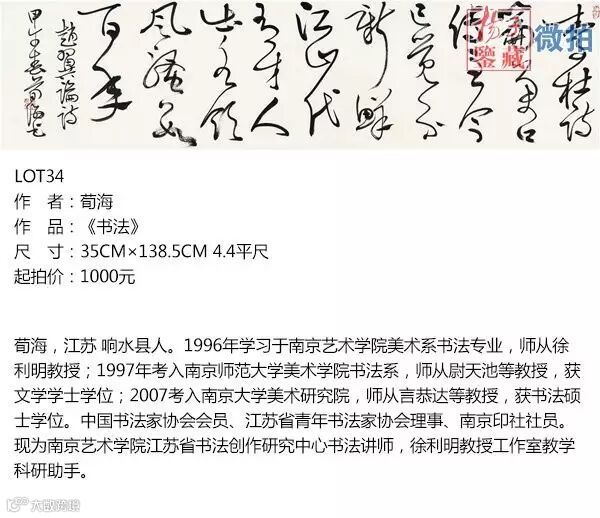 李杜詩
篇萬口
傳至今
已覺不
新鮮
江山代
有才人
出各領
風騷數
百年
趙翼論詩
甲午春荀海
鉴藏
微拍
LOT34
作 者：荀海
作 品：《书法》
尺 寸：35CM×138.5CM 4.4平尺
起拍价：1000元
荀海，江苏 响水县人。1996年学习于南京艺术学院美术系书法专业，师从徐
利明教授；1997年考入南京师范大学美术学院书法系，师从尉天池等教授，获
文学学士学位；2007考入南京大学美术研究院，师从言恭达等教授，获书法硕
士学位。中国书法家协会会员、江苏省青年书法家协会理事、南京印社社员。
现为南京艺术学院江苏省书法创作研究中心书法讲师，徐利明教授工作室教学
科研助手。
大数跨境